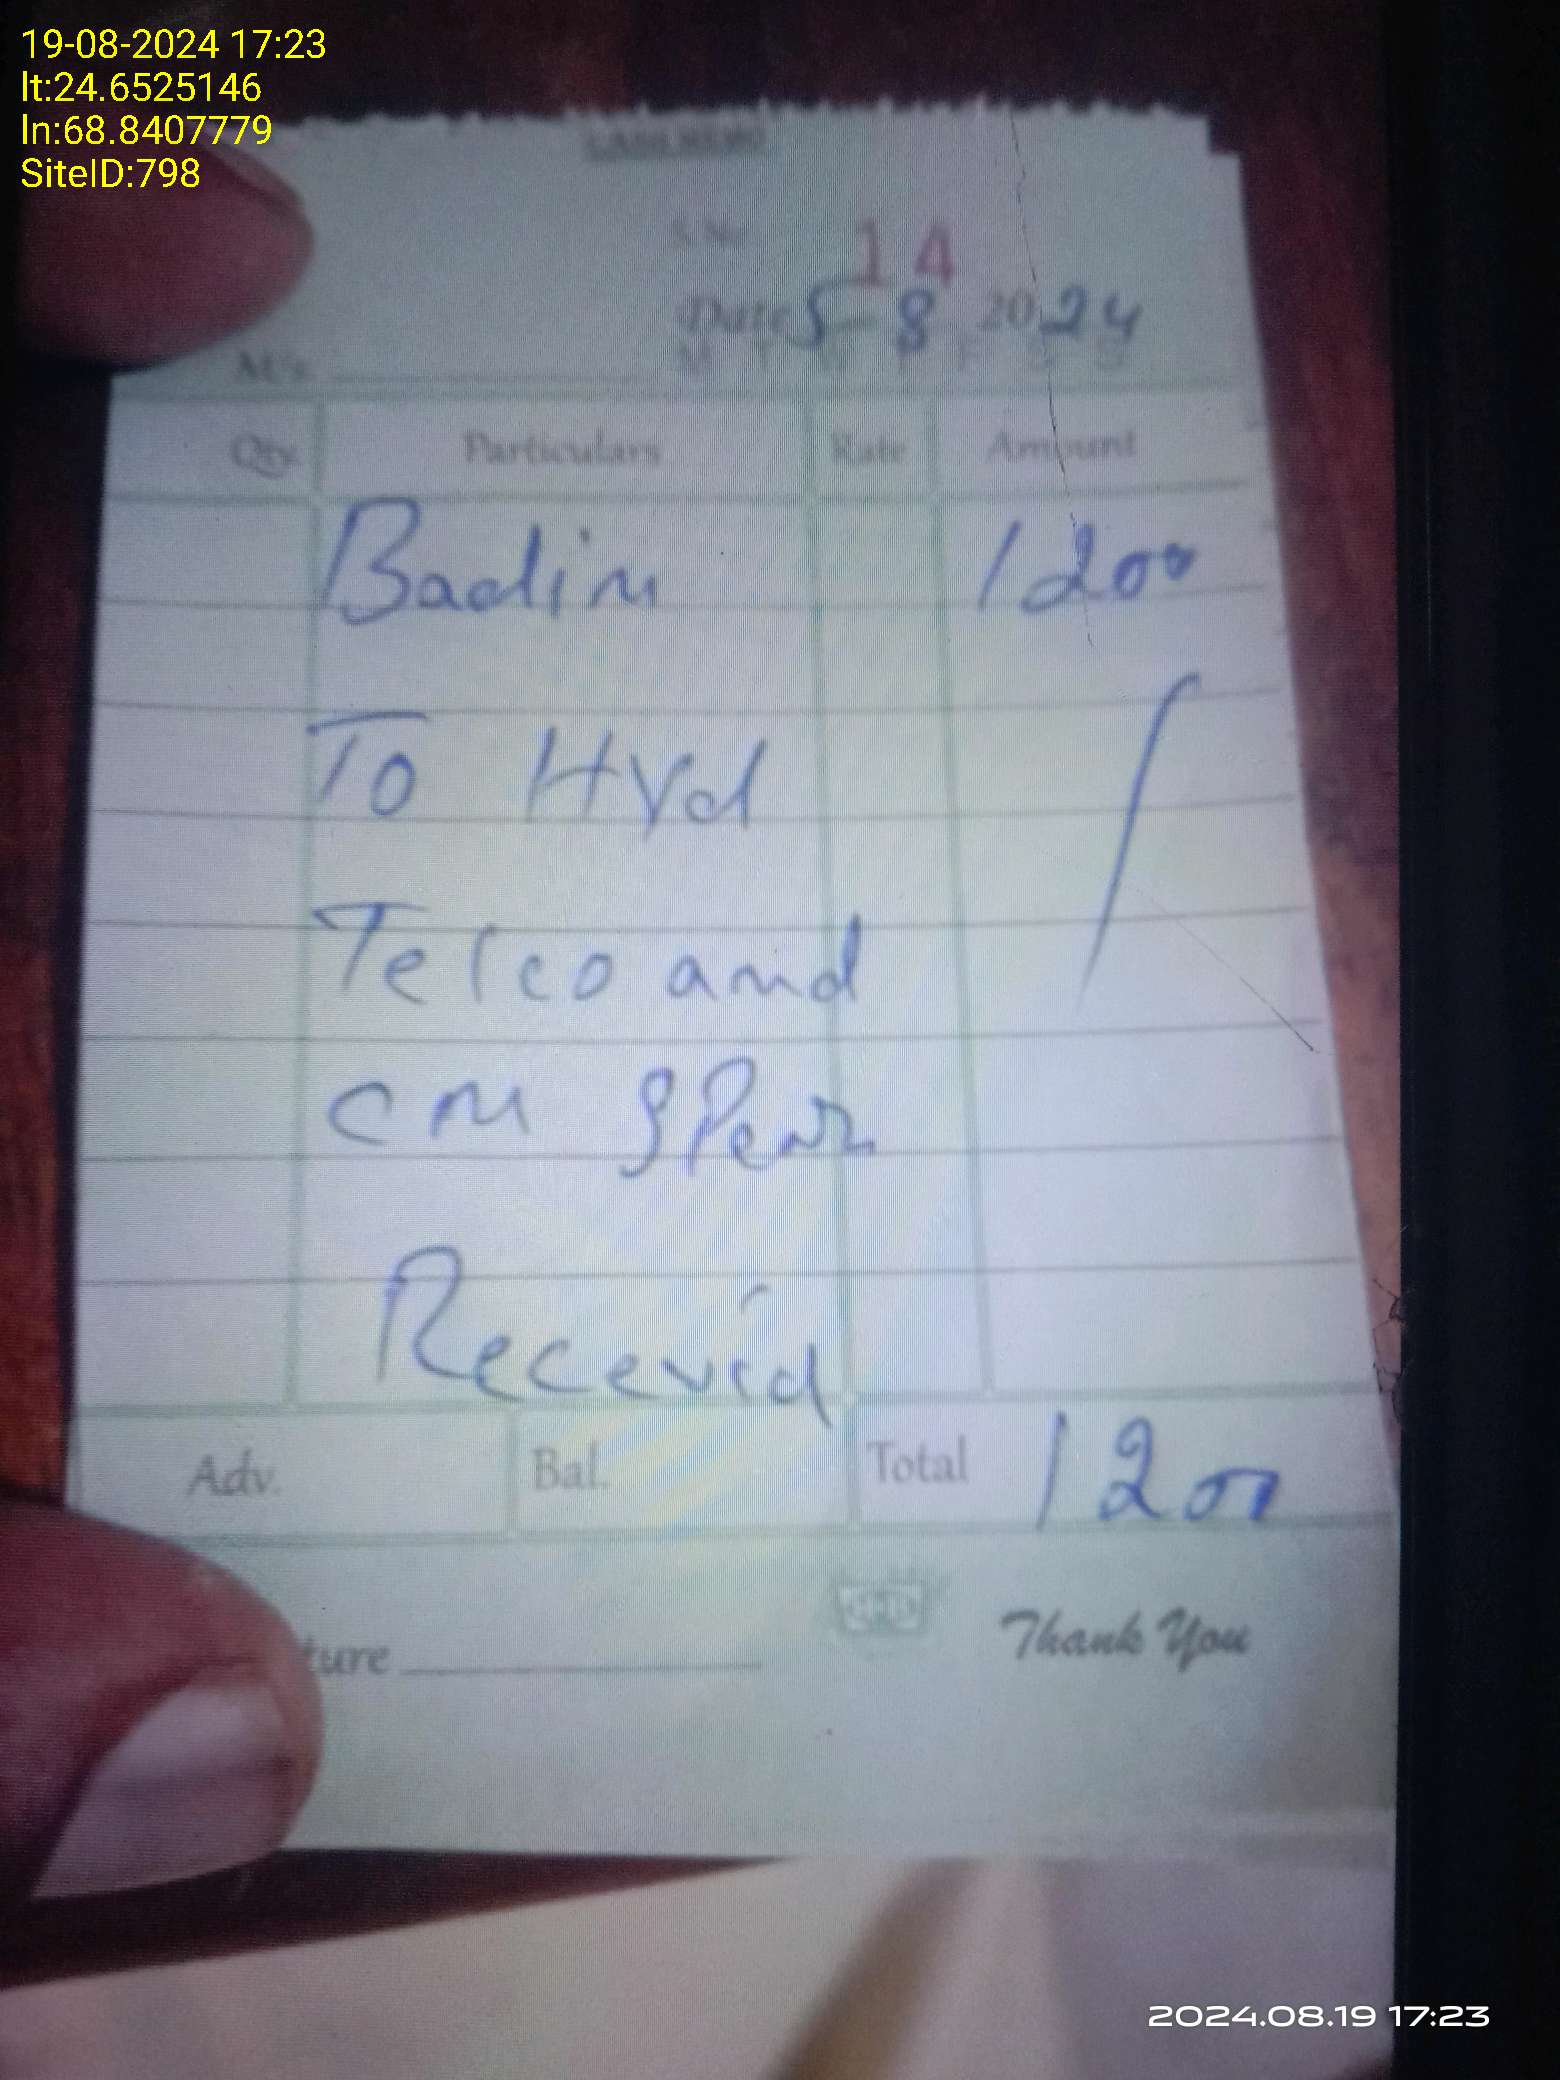 19-08-2024 17:23
lt:24.6525146
ln:68.8407779
SiteID:798
CASH MEMO
S.No. 14
Date 5-8 2024
M T W T F S S
M/s.
Qty. Particulars Rate Amount
Badin 1200
To Hyd
Telco and
cm
Recevid
Adv. Bal. Total 1200
ture
Thank You
2024.08.19 17:23